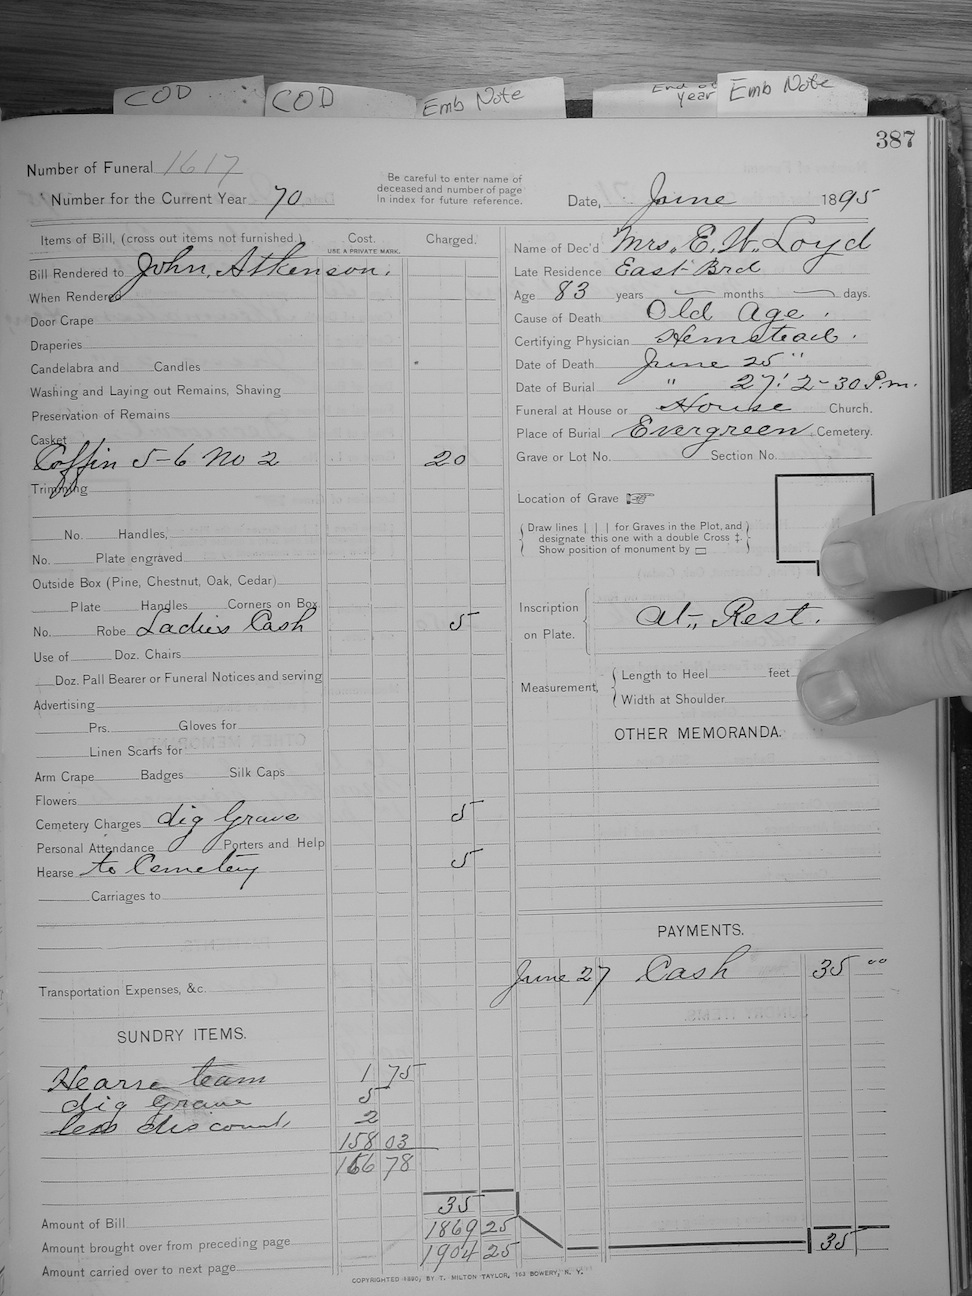 COD
COD
Emb Note
End of
year
Emb Note
387
Number of Funeral 1617
Number for the Current Year 70
Be careful to enter name of
deceased and number of page
in index for future reference.
Date, June 1895
Items of Bill, (cross out items not furnished.) Cost. Charged.
USE A PRIVATE MARK.
Bill Rendered to John, Atkenson.
When Rendered
Door Crape
Draperies
Candelabra and Candles
Washing and Laying out Remains, Shaving
Preservation of Remains
Casket
Coffin 5-6 No 2 20
Trimming
No. Handles,
No. Plate engraved
Outside Box (Pine, Chestnut, Oak, Cedar)
Plate Handles Corners on Box
No. Robe Ladies Cash 5
Use of Doz. Chairs
Doz. Pall Bearer or Funeral Notices and serving
Advertising
Prs. Gloves for
Linen Scarfs for
Arm Crape Badges Silk Caps
Flowers
Cemetery Charges dig Grave 5
Personal Attendance Porters and Help
Hearse to Cemetery 5
Carriages to
Transportation Expenses, &c.
SUNDRY ITEMS.
Hearse team 1 75
dig Grave 5
less discount 2
158 03
166 78
35
Amount of Bill
1869 25
Amount brought over from preceding page
1904 25
Amount carried over to next page
Name of Dec'd Mrs. E. W. Loyd
Late Residence East Brd
Age 83 years months days.
Cause of Death Old Age.
Certifying Physician Hemstead.
Date of Death June 25 "
Date of Burial " 27' 2-30 P.m.
Funeral at House or House Church.
Place of Burial Evergreen Cemetery.
Grave or Lot No. Section No.
Location of Grave
Draw lines | | | for Graves in the Plot, and
designate this one with a double Cross ‡.
Show position of monument by ▭
Inscription
on Plate.
At,, Rest.
Measurement, Length to Heel feet
Width at Shoulder
OTHER MEMORANDA.
PAYMENTS.
June 27 Cash 35 00
35
COPYRIGHTED 1890, BY T. MILTON TAYLOR, 163 BOWERY, N. Y.